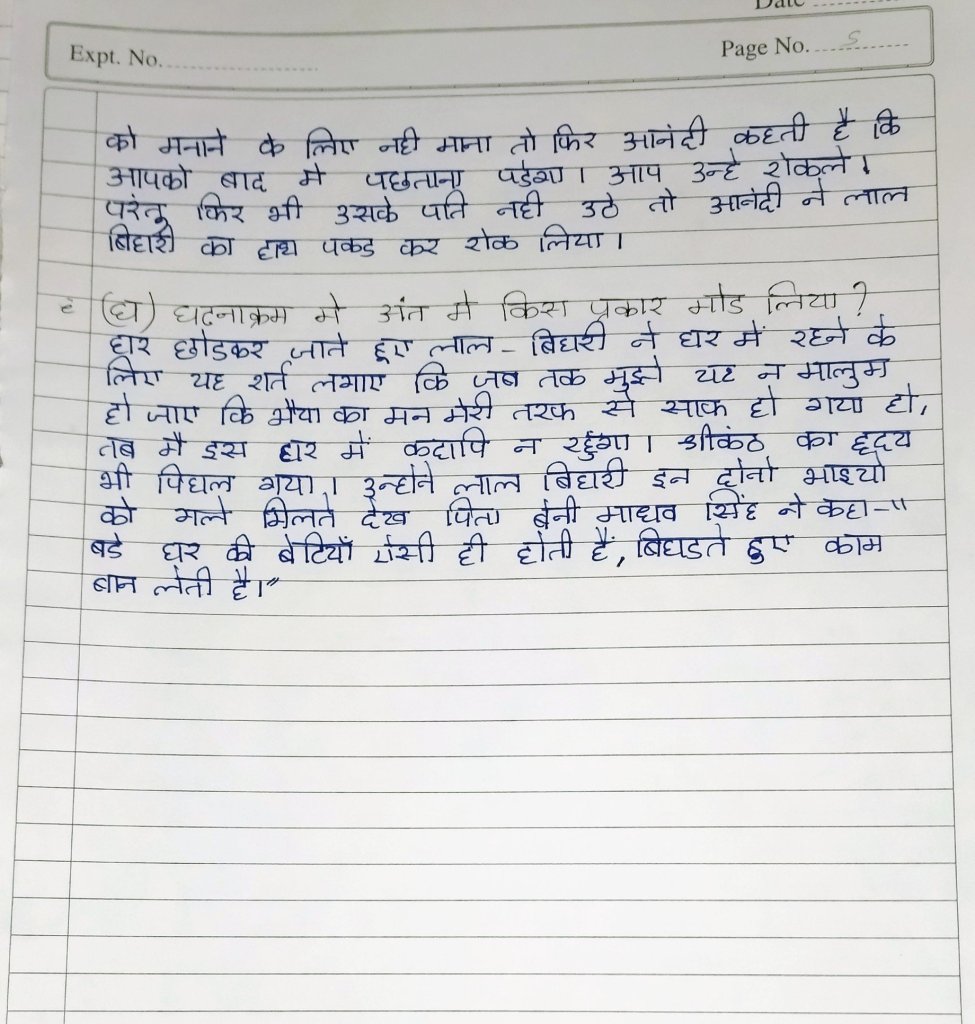 Date
Expt. No.
Page No. 5
को मनाने के लिए नही माना तो फिर आनंदी कहती है कि
आपको बाद मे पछताना पडेगा। आप उन्हे रोकले।
परंतू फिर भी उसके पति नही उठे तो आनंदी ने लाल
बिहारी का हाथ पकड कर रोक लिया।
(घ) घटनाक्रम मे अंत मे किस प्रकार मोड लिया?
घर छोडकर जाते हूए लाल - बिहारी ने घर में रहने के
लिए यह शर्त लगाए कि जब तक मुझे यह न मालुम
हो जाए कि भैया का मन मेरी तरफ से साफ हो गया हो,
तब मै इस घर में कदापि न रहुंगा। श्रीकंठ का हृदय
भी पिघल गया। उन्होने लाल बिहारी इन दोनो भाइयो
को गले मिलते देख पिता बेनी माधव सिंह ने कहा-"
बडे घर की बेटियाँ ऐसी ही होती हैं, बिघडते हुए काम
बान लेती है।"